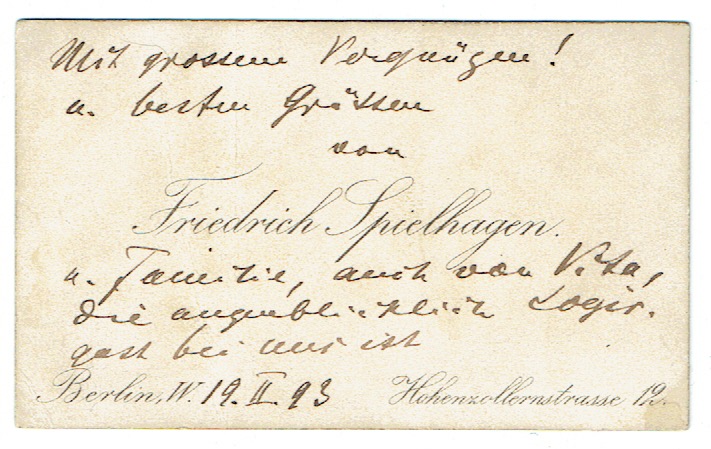 Mit grossem Vergnügen!
u. besten Grüssen
von
Friedrich Spielhagen.
u. Familie, auch von Vita,
die augenblicklich Logir-
gast bei uns ist
Berlin, W. 19. II. 93 Hohenzollernstrasse 12.